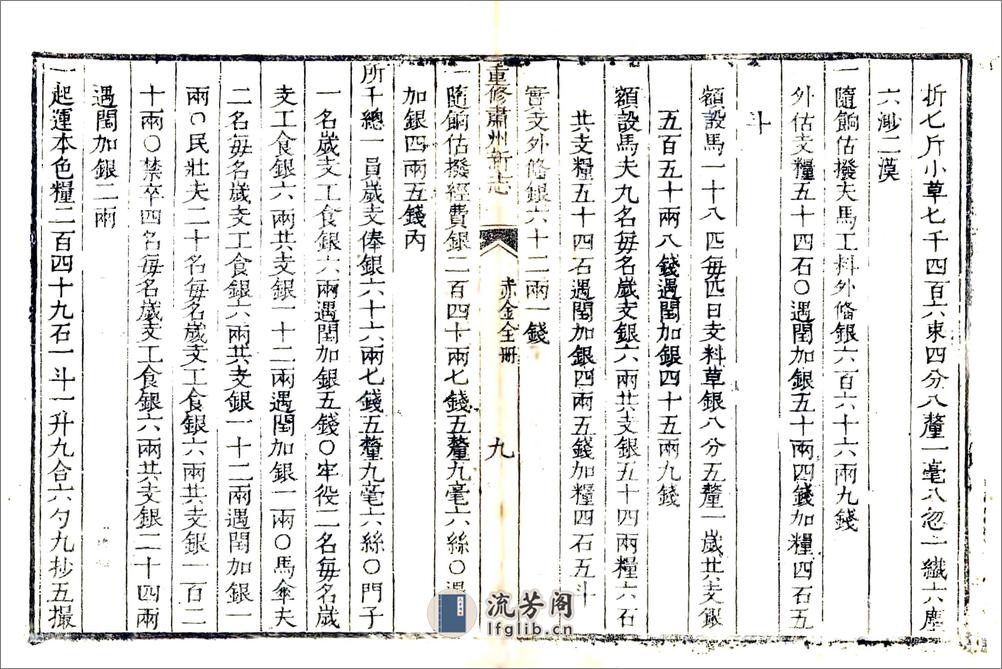 折七斤小草七千四百六束四分八釐一毫八忽二纖六塵
六渺二漠
一隨餉估撥夫馬工料外備銀六百六十六兩九錢
外估支糧五十四石〇遇閏加銀五十兩四錢加糧四石五
斗
額設馬一十八匹每匹日支料草銀八分五釐一歲共支銀
五百五十兩八錢遇閏加銀四十五兩九錢
額設馬夫九名每名歲支銀六兩共支銀五十四兩糧六石
共支糧五十四石遇閏加銀四兩五錢加糧四石五斗
實支外備銀六十二兩一錢
重修肅州新志
赤金全冊
九
一隨餉估撥經費銀二百四十兩七錢五釐九毫六絲〇遇
加銀四兩五錢內
所千總一員歲支俸銀六十六兩七錢五釐九毫六絲〇門子
一名歲支工食銀六兩遇閏加銀五錢〇牢役二名每名歲
支工食銀六兩共支銀一十二兩遇閏加銀一兩〇馬傘夫
二名每名歲支工食銀六兩共支銀一十二兩遇閏加銀一
兩〇民壯夫二十名每名歲支工食銀六兩共支銀一百二
十兩〇禁卒四名每名歲支工食銀六兩共支銀二十四兩
遇閏加銀二兩
一起運本色糧二百四十九石一斗一升九合六勺九抄五撮
流芳阁
lfglib.cn